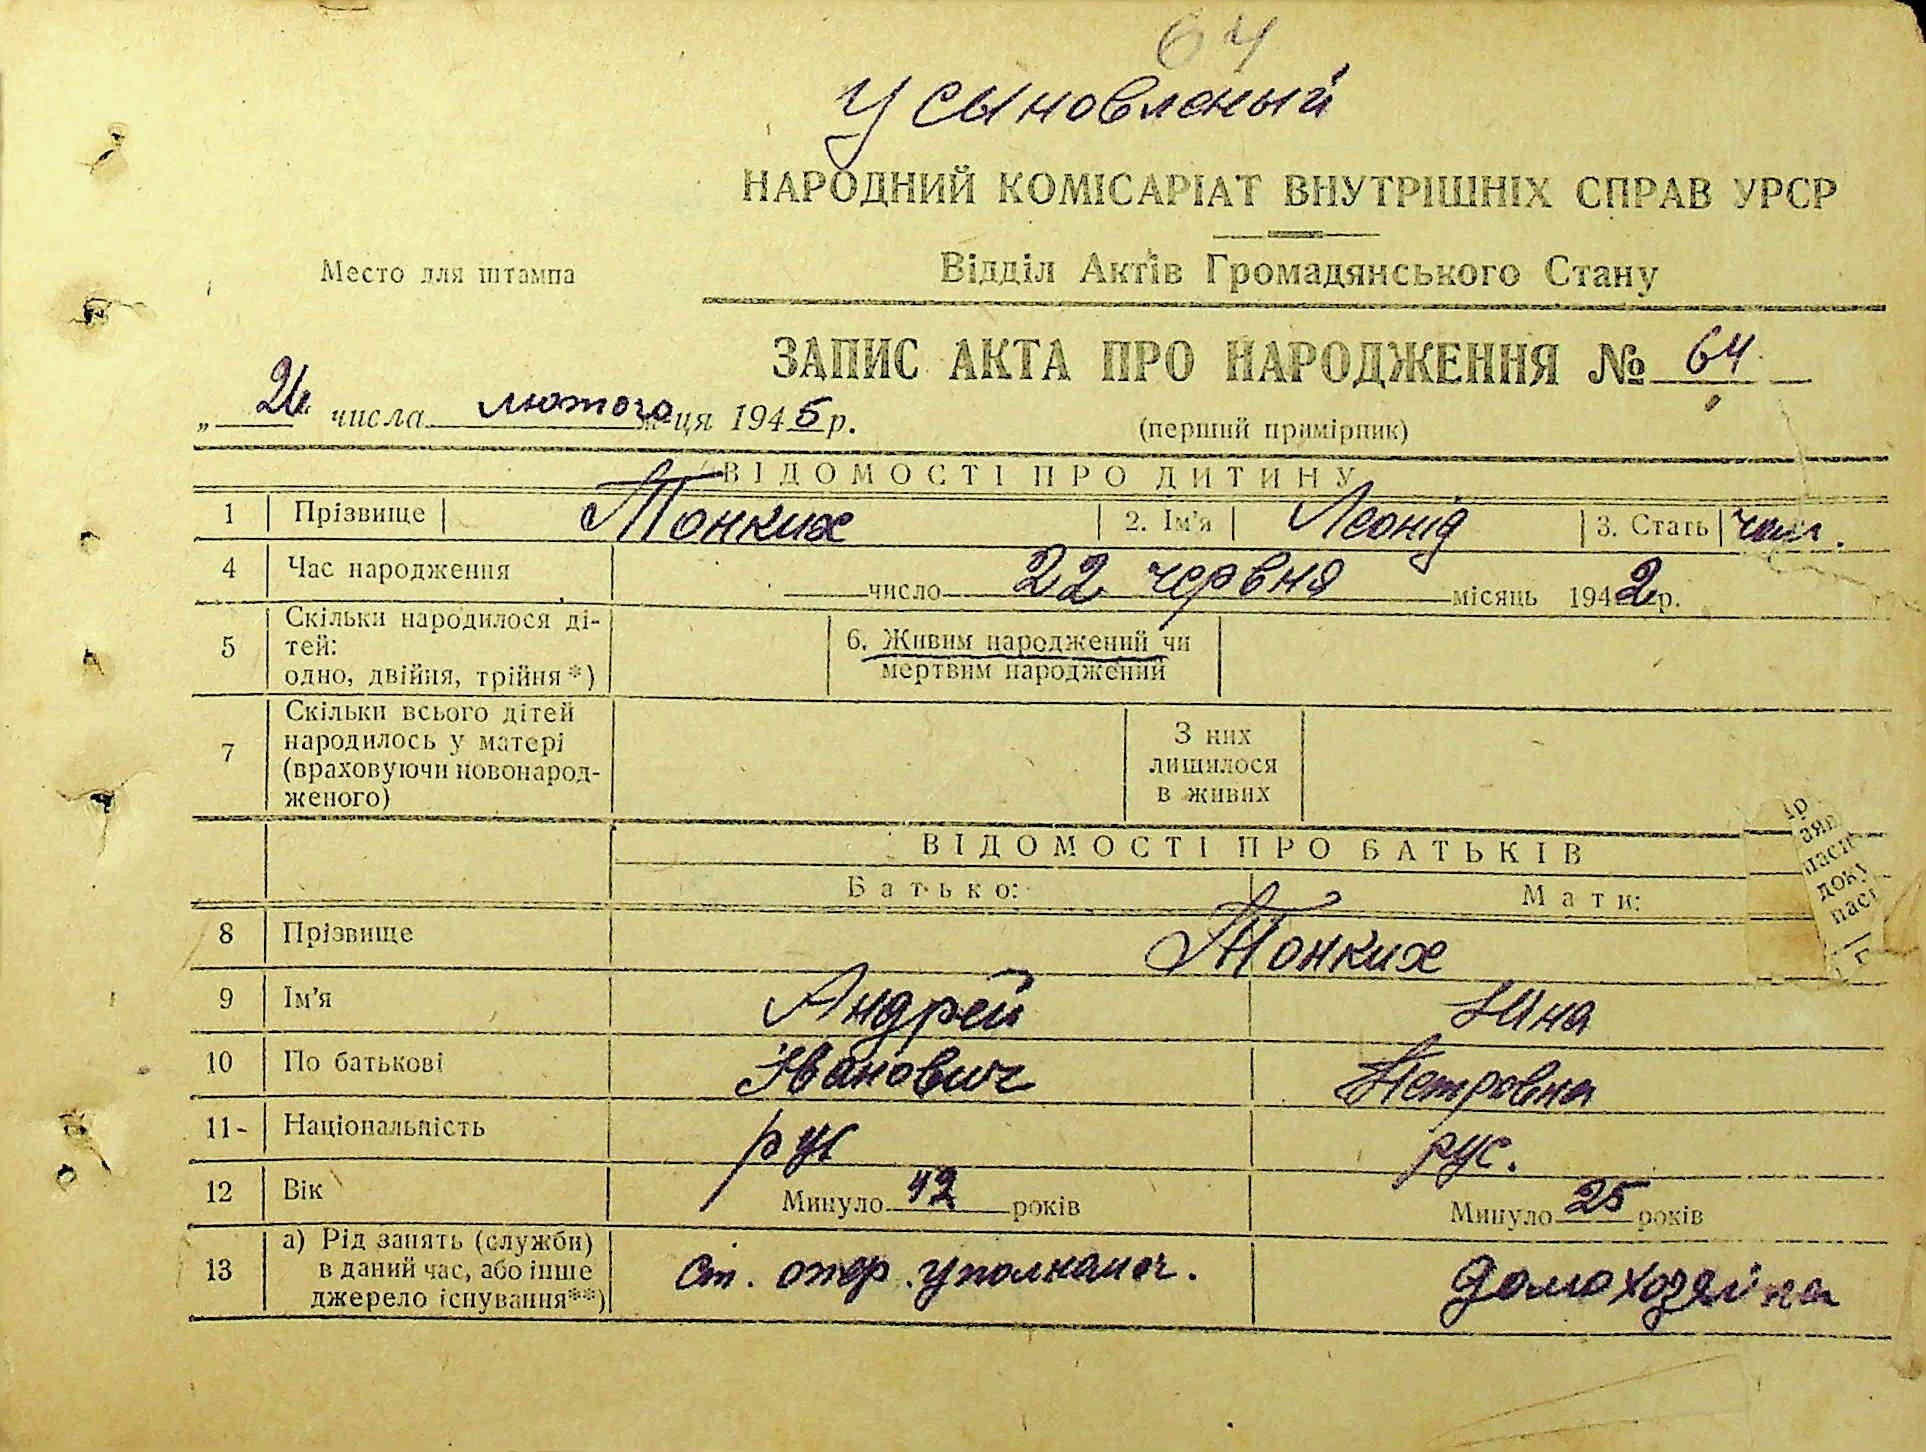 64
Усыновленый
НАРОДНИЙ КОМІСАРІАТ ВНУТРІШНІХ СПРАВ УРСР
Место для штампа
Відділ Актів Громадянського Стану
ЗАПИС АКТА ПРО НАРОДЖЕННЯ № 64
„ числа лютого м-ця 1945 р.
(перший примірник)
ВІДОМОСТІ ПРО ДИТИНУ
1 Прізвище Тонких 2. Ім'я Леонід 3. Стать чол.
4 Час народження число 22 червня місяць 1942 р.
5 Скільки народилося ді-
тей:
одно, двійня, трійня*)
6. Живим народжений чи
мертвим народжений
7 Скільки всього дітей
народилось у матері
(враховуючи новонарод-
женого)
З них
лишилося
в живих
ВІДОМОСТІ ПРО БАТЬКІВ
Батько: Мати:
8 Прізвище Тонких
9 Ім'я Андрей Ніна
10 По батькові Іванович Петровна
11 Національність рус рус.
12 Вік Минуло 42 років Минуло 25 років
13 а) Рід занять (служби)
в даний час, або інше
джерело існування**)
ст. опер. уполномоч. домохозяйка
ір
аяв
пасп
доку
пасп